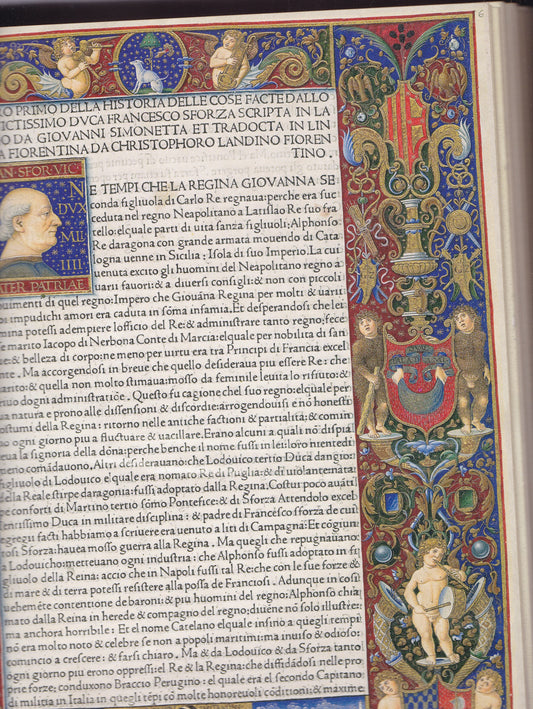 6
RO PRIMO DELLA HISTORIA DELLE COSE FACTE DALLO
VICTISSIMO DVCA FRANCESCO SFORZA SCRIPTA IN LA
NO DA GIOVANNI SIMONETTA ET TRADOCTA IN LIN
A FIORENTINA DA CHRISTOPHORO LANDINO FIOREN
TINO.
AN·SFOR·VIC
N
DVX
MLI
IIII
ATER PATRIAE
E TEMPI CHE LA REGINA GIOVANNA SE
conda figliuola di Carlo Re regnaua: perche era suc
ceduta nel regno Neapolitano a Latislao Re suo fra
tello: elquale parti di uita sanza figliuoli; Alphonso
Re daragona con grande armata mouendo di Cata
logna uenne in Sicilia: Isola di suo Imperio. La cui
uenuta excito gli huomini del Neapolitano regno a
uarii fauori: & a diuersi consigli: & non con piccoli
ouimenti di quel regno: Impero che Giouána Regina per molti & uarii
oi impudichi amori era caduta in sóma infamia. Et desperandosi che lei
mina potessi adempiere lofficio del Re: & administrare tanto regno: fece
se marito Iacopo di Nerbona Conte di Marcia: elquale per nobilita di san
e: & belleza di corpo: ne meno per uirtu era tra Principi di Francia excel
nte. Ma accorgendosi in breue che quello desideraua piu essere Re: che
arito: & quella non molto stimaua: mosso da feminile leuita lo rifiuto: &
iuo dogni administratióe. Questo fu cagione chel suo regno: elquale per
a natura e prono alle dissensioni & discordie: arrogendouisi e nó honesti
ostumi della Regina: ritorno nelle antiche factioni & partialita: & comin
o ogni giorno piu a fluctuare & uacillare. Erano alcuni a quali nó dispia
eua la signoria della dóna: perche benche il nome fussi in lei: loro niente di
meno comádauono. Altri desiderauano: che Lodouico tertio Duca dangio:
figliuolo di Lodouico elquale era nomato Re di Puglia: & di uiolante nata
della Reale stirpe daragonia: fussi adoptato dalla Regina. Costui poco auáti
e conforti di Martino tertio sómo Pontefice: & di Sforza Attendolo excel
lentissimo Duca in militare disciplina: & padre di Francesco sforza de cui
egregii facti habbiamo a scriuere era uenuto a liti di Campagna: Et cógiun
tosi Sforza: hauea mosso guerra alla Regina. Ma quegli che repugnauano
a Lodouicho: metteuano ogni industria: che Alphonso fussi adoptato in fi
gliuolo della Reina: accio che in Napoli fussi tal Re: che con le sue forze &
di mare & di terra potessi resistere alla possa de Franciosi. Adunque in cosi
uehemête contentione de baroni: & piu huomini del regno: Alphonso chia
mato dalla Reina in herede & compagno del regno: diuêne nó solo illustre:
ma anchora horribile: Et el nome Catelano elquale insino a quegli tempi
nó era molto noto & celebre se non a popoli maritimi: ma inuiso & odioso:
comincio a crescere: & farsi chiaro. Ma & da Lodouico & da Sforza tanto
ogni giorno piu erono oppressi el Re & la Regina: che diffidádosi nelle pro
prie forze: conduxono Braccio Perugino: el quale era el secondo Capitano
di militia in Italia in quegli têpi có molte honoreuoli códitioni: & maxime